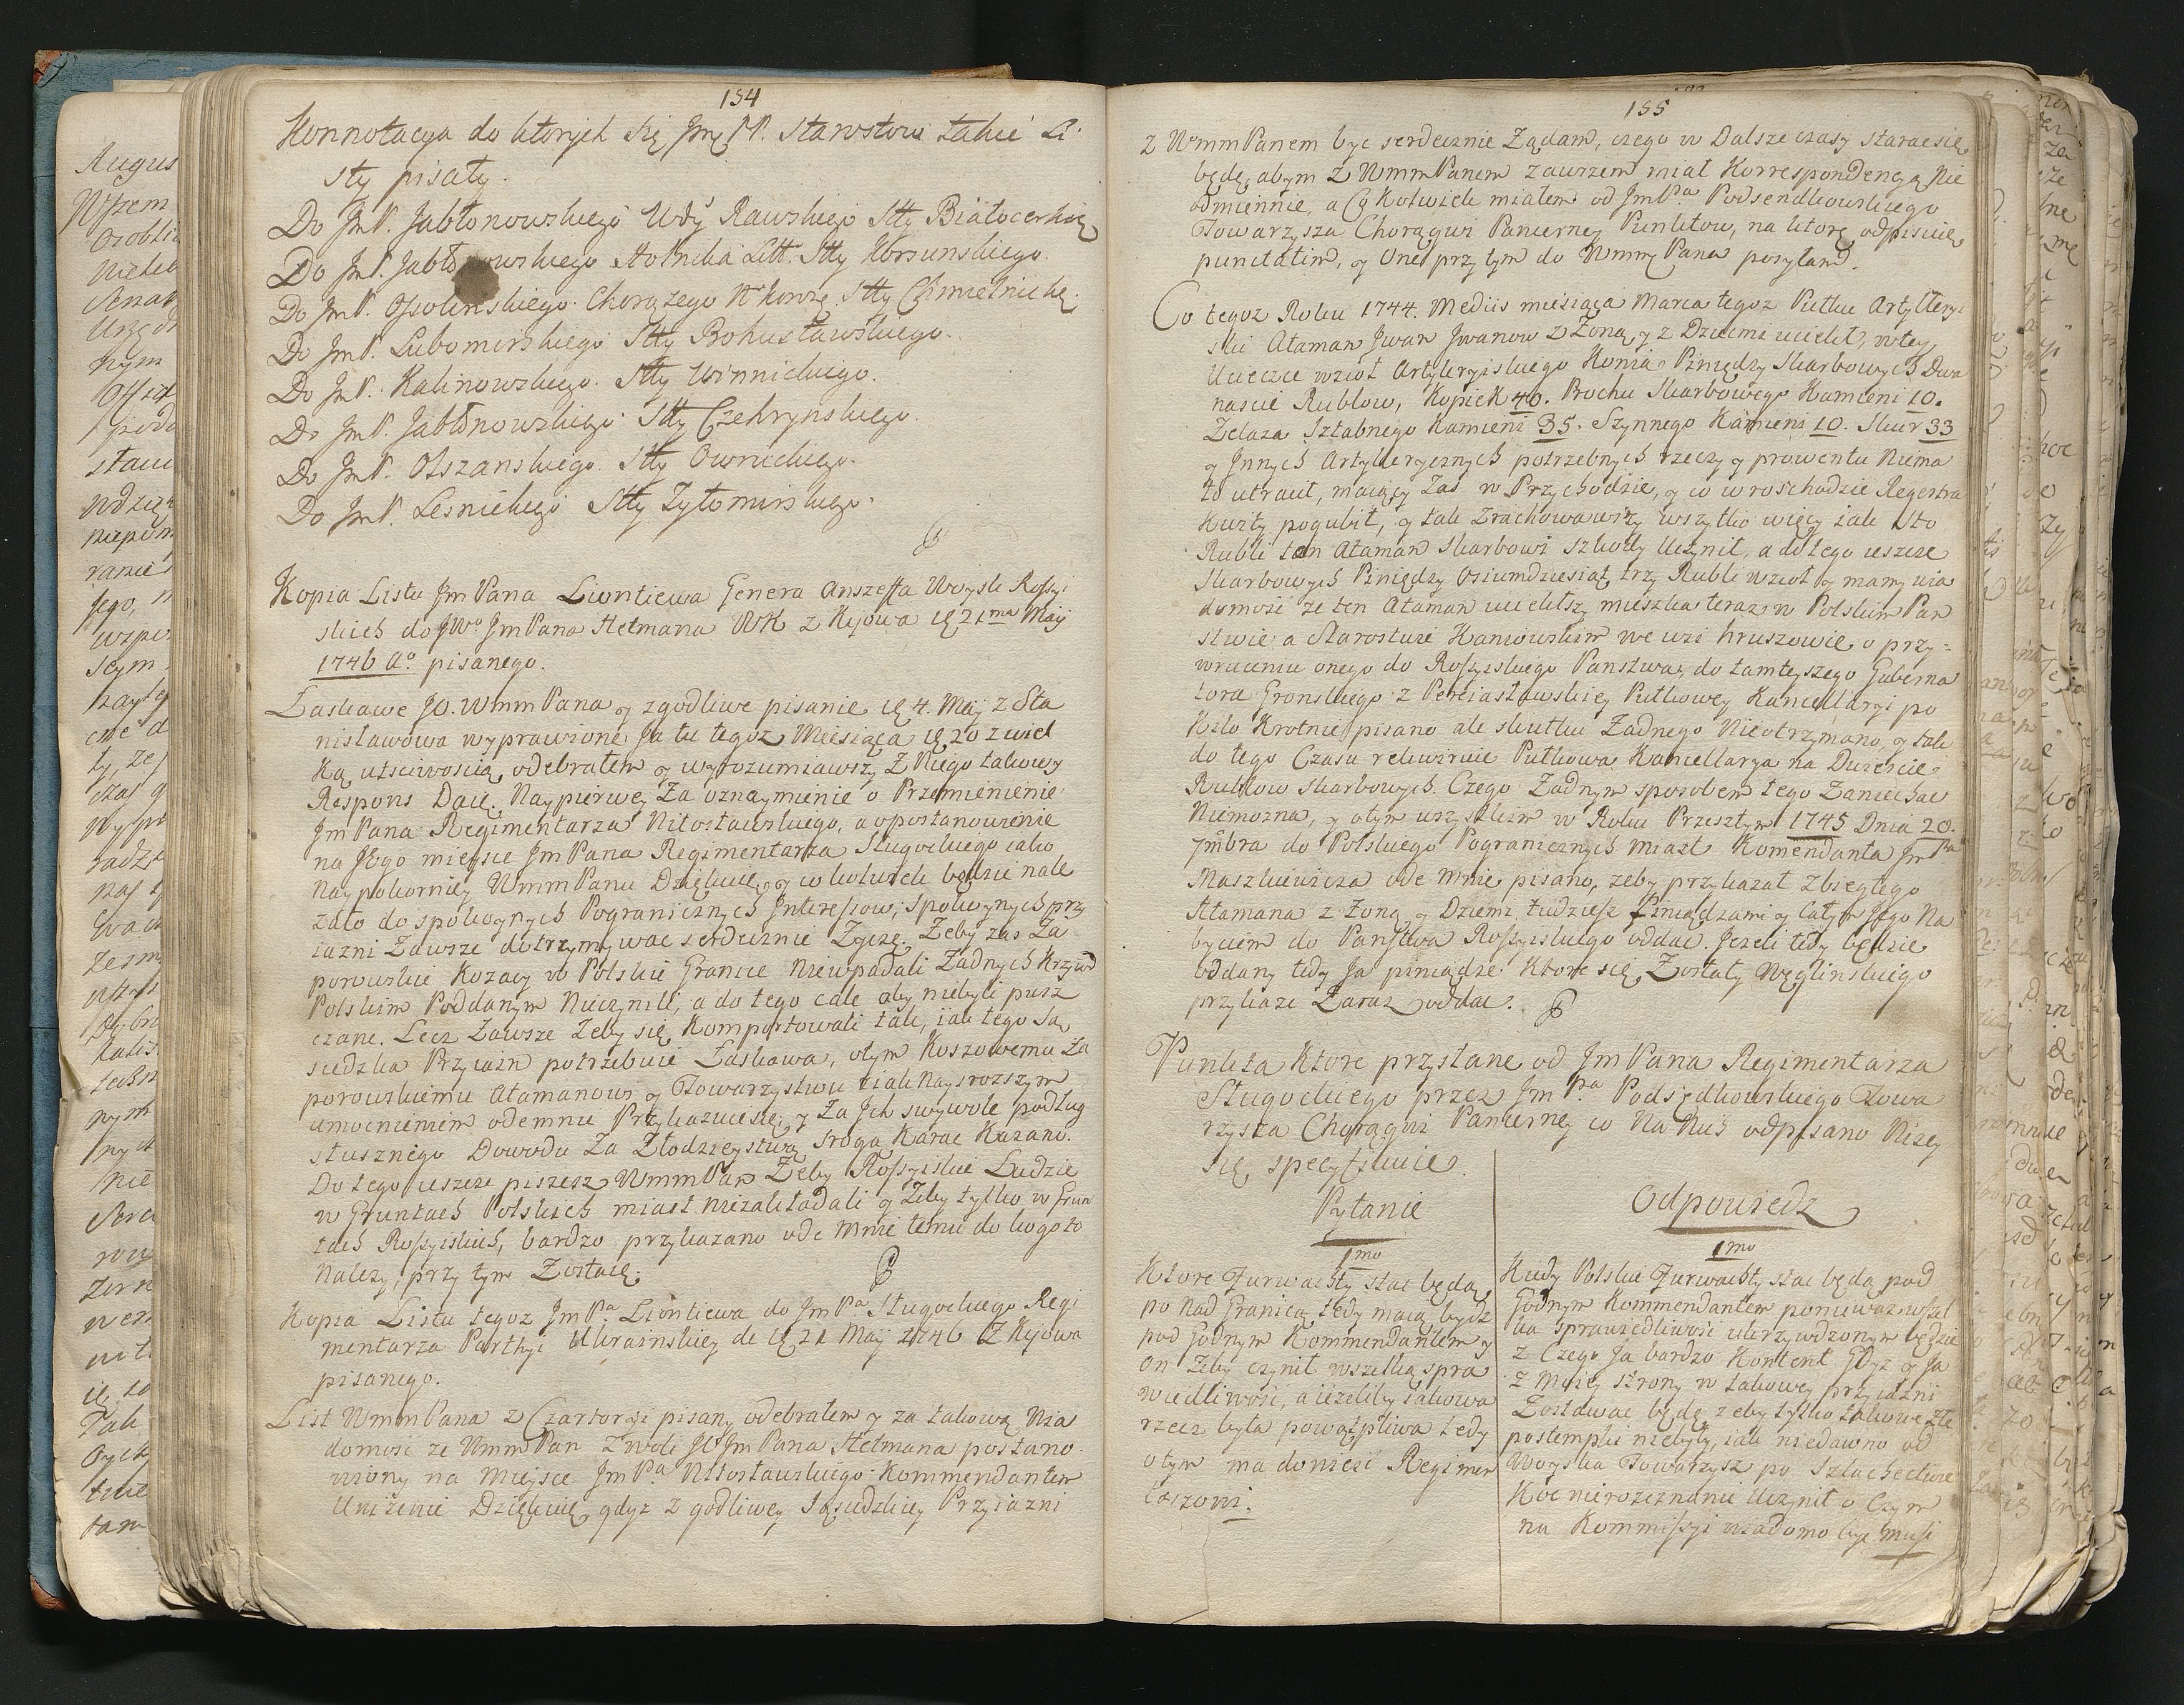 154
Konnotacya do ktorych się Jmć PP. Starostow takie Li
sty pisały.
Do JmP. Jabłonowskiego Wdy Rawskiego Stty Białocerkie
Do JmP. Jabłonowskiego Stolnika Litt. Stty Korsunskiego.
Do JmP. Ossolinskiego Chorążego Nkoronę Stty Chmielnickie
Do JmP. Lubomirskiego Stty Bohusławskiego.
Do JmP. Kalinowskiego. Stty Winnickiego.
Do JmP. Jabłonowskiego Stty Czehrynskiego.
Do JmP. Olszanskiego. Stty Owruckiego.
Do JmP. Lesnickiego Stty Zytomirskiego.
Kopia Listu JmPana Liontiewa Genera Anszeffa Woysk Rossyi
skich do JWo JmPana Hetmana WK z Kijowa d 21ma Maij
1746 Ao pisanego.
Łaskawe JO. WmmPana y zgodliwe pisanie d 4. Maij z Sta
nisławowa wyprawione Ja tu tegoz Miesiąca d 20 z wiel
ką utsciwoscią odebrałem y wyrozumiawszy z Niego takowy
Respons Daię. Naypierwey Za oznaymienie o Przemienienie
JmPana Regimentarza Nitosławskiego, a o postanowienie
na Jego mieysce JmPana Regimentarza Sługockiego iako
naypokorniey WmmPanu Dziękuię, y w kolwiek będzie nale
zało do spokoynych Pogranicznych Interessow, spokoynych przy
iazni Zawsze dotrzymywac serdecznie Zyczę. Zeby zas Za
porowskie Kozacy w Polskie Granice Niewpadali Zadnych Krzywd
Polskim Poddanym Nieczynili, a do tego cale aby niebyli pusz
czane. Lecz Zawsze Zeby się Komportowali tak, iak tego Są
siedzka Przyiazn potrzebuie Łaskawa, o tym Koszowemu Za
porowskiemu Atamanowi y Towarzystwu iak Naysrozszym
umocnieniem odemnie Przykazuie się, y Za Ich swywole podług
słusznego Dowodu Za Złodzieystwa srogo Karac Kazano.
Do tego ieszcze piszesz WmmPan Zeby Rossyiskie Ludzie
w Gruntach Polskich miast niezakładali y Zeby tylko w Grun
tach Rossyiskich, bardzo przykazano ode Mnie temu do kogo to
Nalezy, przy tym Zostaię.
Kopia Listu tegoz JmPa Liontiewa do JmPa Sługockiego Regi
mentarza Parthyi Ukrainskiey de d 21 Maij 1746 Z Kijowa
pisanego.
List WmmPana z Czartoryi pisany odebrałem y za takową Wia
domosc ze WmmPan z woli JW JmPana Hetmana postano
wiony na mieysce JmPa Nitosławskiego Kommendantem
Unizenie Dziękuię, gdyz z godliwey Sąsiedzkiey Przyiazni
155
z WmmPanem byc serdecznie Ządam, czego w Dalsze czasy staracsię
będę, abym z WmmPanem zawrzem miał Korrespondencyą Nie
odmiennie, a Co Kolwiek miałem od JmPa Podsendkowskiego
Towarzysza Chorągwi Pancerney Punktow, na ktore odpisuię
punctatim, y One przy tym do WmmPana posyłam.
Co tegoz Roku 1744. Mediis miesiąca Marca tegoz Putku Artyllery
ski Ataman Jwan Jwanow z Zoną y z Dziecmi uciekł, w tey
Ucieczce wzioł Artyleryiskiego Konia Pieniędzy Skarbowych Dwa
nascie Rublow, Kopiek 40. Prochu Skarbowego Kamieni 10.
Zelaza Sztabnego Kamieni 35. Szynnego Kamieni 10. Skur 33
y Jnnych Artylerycznych potrzebnych rzeczy y prowentu Niema
to utracił, maiący Zas w Przychodzie, y co w roschodzie Regestra
Kwity pogubił, y tak Zrachowawszy wszytko więcy iak Sto
Rubli ten Ataman Skarbowi szkody Uczynił, a do tego ieszcze
Skarbowych Pieniędzy Osiumdziesiąt trzy Rubli wzioł y mamy wia
domosc ze ten Ataman uciekłszy mieszka teraz w Polskim Pan
stwie a Starostwie Kaniowskim we wsi hruszowie o przy=
wruceniu onego do Rossyiskiego Panstwa, do tamteyszego Guberna
tora Gronskiego z Pereiasławskiey Putkowey Kancellaryi po
kilo Krotnie pisano ale skutku Zadnego Nieotrzymano, y tak
do tego Czasu rekwiruie Putkowa Kancellarya na Dwiescie
Rublow skarbowych. Czego Zadnym sposobem tego Zaniechac
Niemozna, y o tym wszystkim w Roku Przeszłym 1745 Dnia 20.
7mbra do Polskiego Pogranicznych miast Komendanta JmPa
Maszkiewicza ode Mnie pisano, zeby przykazał zbiegłego
Atamana z zoną y Dziecmi tudziesz Pieniądzami y całym Jego Na
byciem do Panstwa Rossyiskiego oddac. Jezeli tedy będzie
oddany tedy Ja pieniądze Ktore się Zostały Węglinskiego
przykaze Zaraz oddac.
Punkta Ktore przysłane od JmPana Regimentarza
Sługockiego przez JmPa Podsędkowskiego Towa
rzysza Chorągwi Pancerney co Na Nich odpisano Nizey
się specyfikuie.
Pytanie
1mo
Ktore Furwachty stac będą
po Nad Granicą tedy maią bydz
pod Godnym Kommendantem y
On Zeby czynił wszelką spra
wiedliwosc, a iezeliby takowa
rzecz była powątpliwa tedy
o tym ma doniesc Regimen
tarzowi.
Odpowiedz
1mo
Kiedy Polskie Furwachty stac będą pod
Godnym Kommendantem poniewaz wszel
ka sprawiedliwosc ukrzywdzonym będzie
z Czego Ja bardzo Kontent Gdyz y Ja
z Moiey strony w takowey przyiazni
Zostawac będę zeby tylko takowe złe
postempki niebyły, iak niedawno od
Woyska Towarzysz po Szlachectwie
Koc nierozeznanie Uczynił o Czym
na Kommissyi wiadomo byc musi